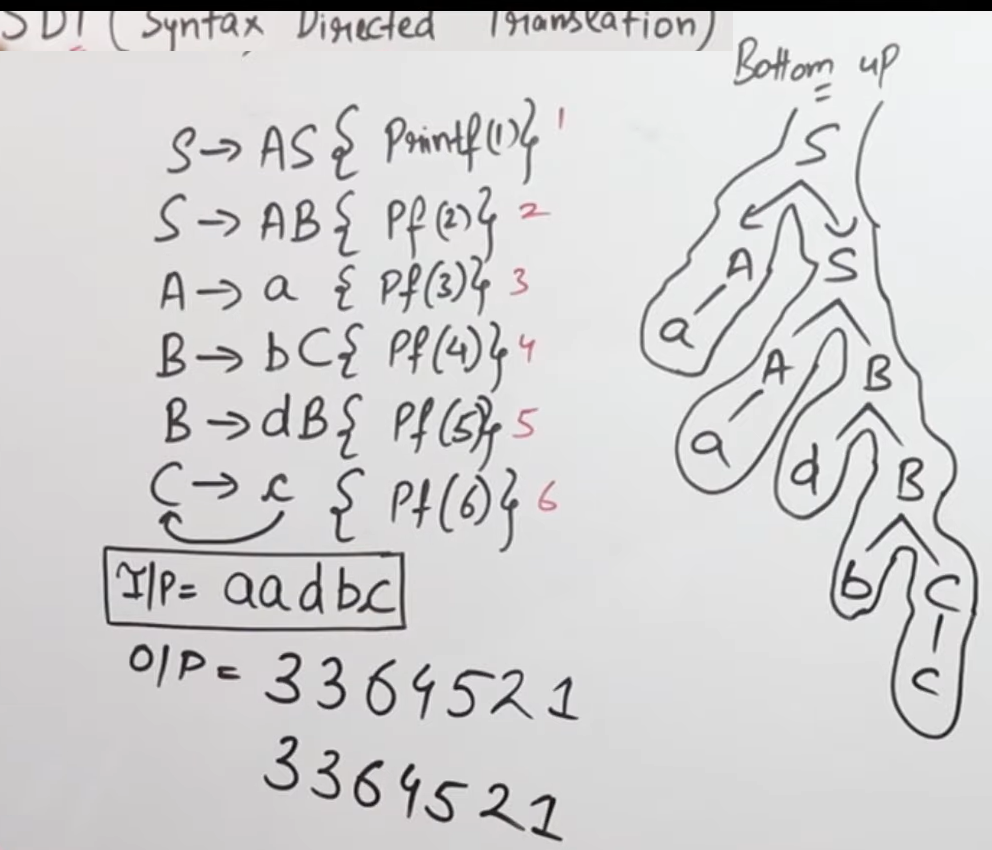 SDT (Syntax Directed Translation)
Bottom up
S → AS { Printf(1)} 1
S → AB { Pf(2)} 2
A → a { Pf(3)} 3
B → bC { Pf(4)} 4
B → dB { Pf(5)} 5
C → c { Pf(6)} 6
I/P= aadbc
O/P = 3364521
3364521
S
A S
a A B
a d B
b C
c